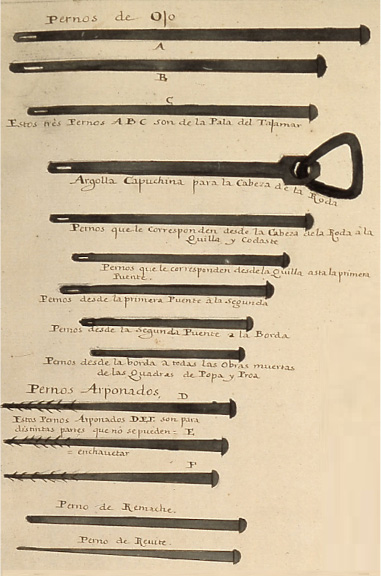 Pernos de Ojo
A
B
C
Estos tres Pernos A B C son de la Pala del Tajamar
Argolla Capuchina para la Cabeza de la Roda
Pernos que le corresponden desde la Cabeza de la Roda à la
Quilla y Codaste
Pernos que le corresponden desde la Quilla asta la primera
Puente.
Pernos desde la primera Puente à la Segunda
Pernos desde la Segunda Puente a la Borda
Pernos desde la borda a todas las Obras muertas
de las Quadras de Popa y Proa
Pernos Arponados,
D
Estos Pernos Arponados D.E.F. son para
distintas partes que nó se pueden =
E
= enchavetar
F
Perno de Remache.
Perno de Reuite.